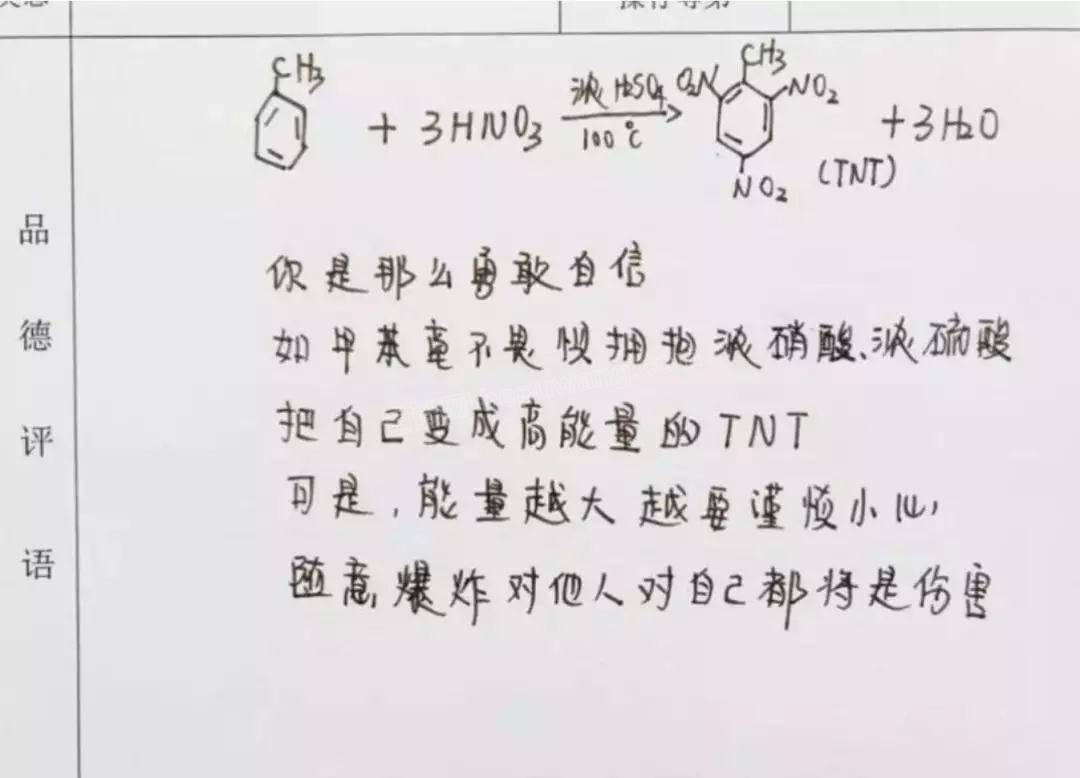 操行等第
CH3 + 3HNO3 浓H2SO4 100℃ → O2N CH3 NO2 NO2 (TNT) + 3H2O
品德评语
你是那么勇敢自信
如甲苯毫不畏惧拥抱浓硝酸、浓硫酸
把自己变成高能量的TNT
可是,能量越大越要谨慎小心,
随意爆炸对他人对自己都将是伤害